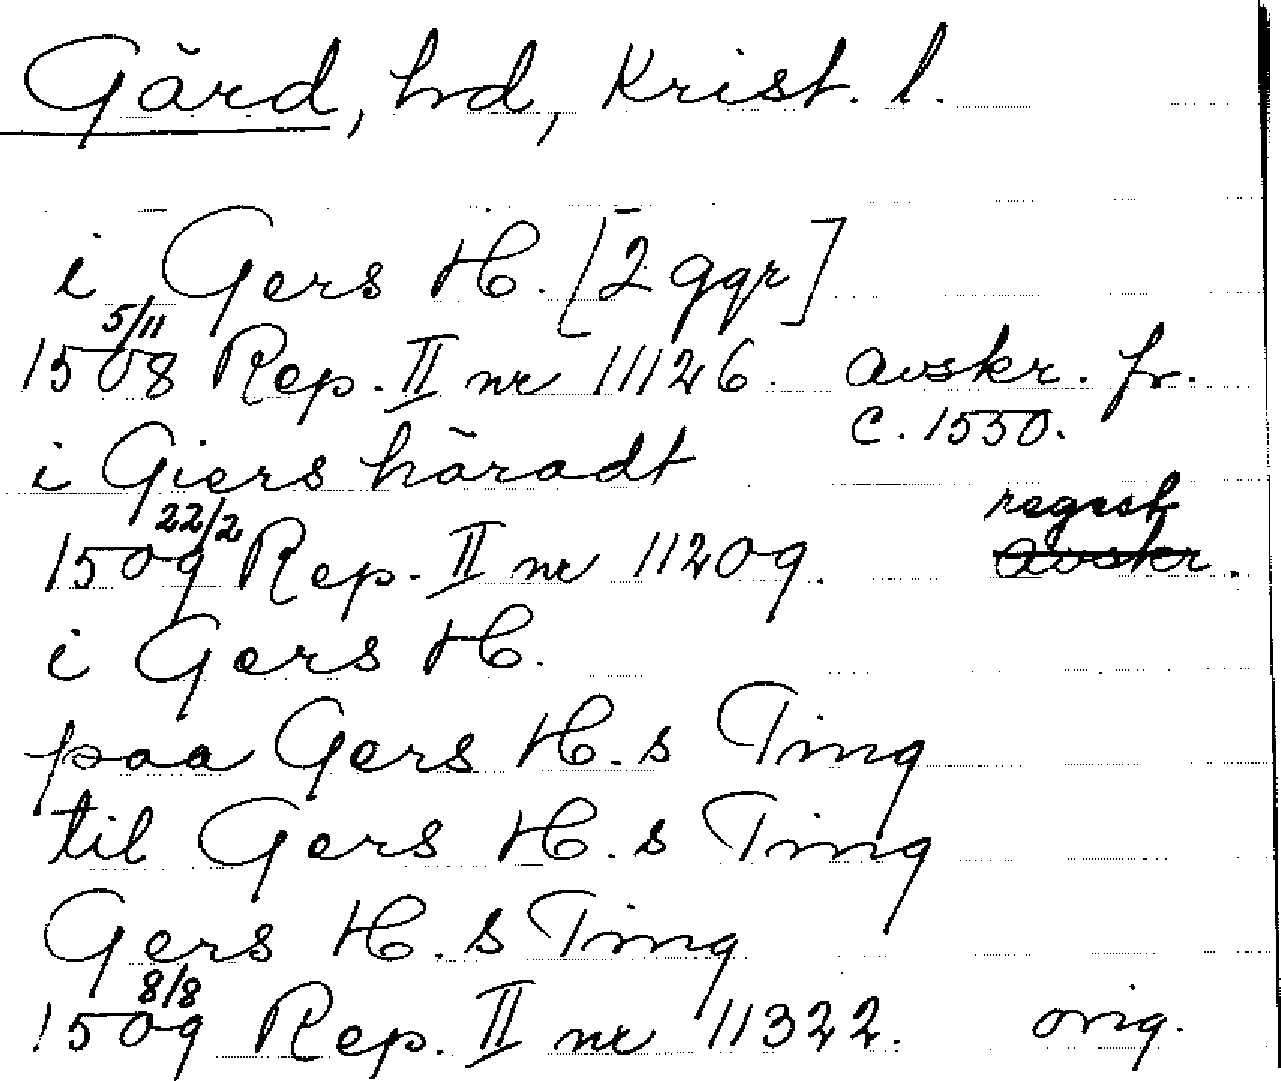 Gärd, hd, Krist. l.
i Gers H. [2 ggr]
5/11
1508 Rep. II nr 11126. avskr. fr.
c. 1550.
i Giers häradt
22/2 regest
1509 Rep. II nr 11209. avskr.
i Gers H.
paa Gers H. s Ting
til Gers H. s Ting
Gers H. s Ting
8/8
1509 Rep. II nr 11322. orig.